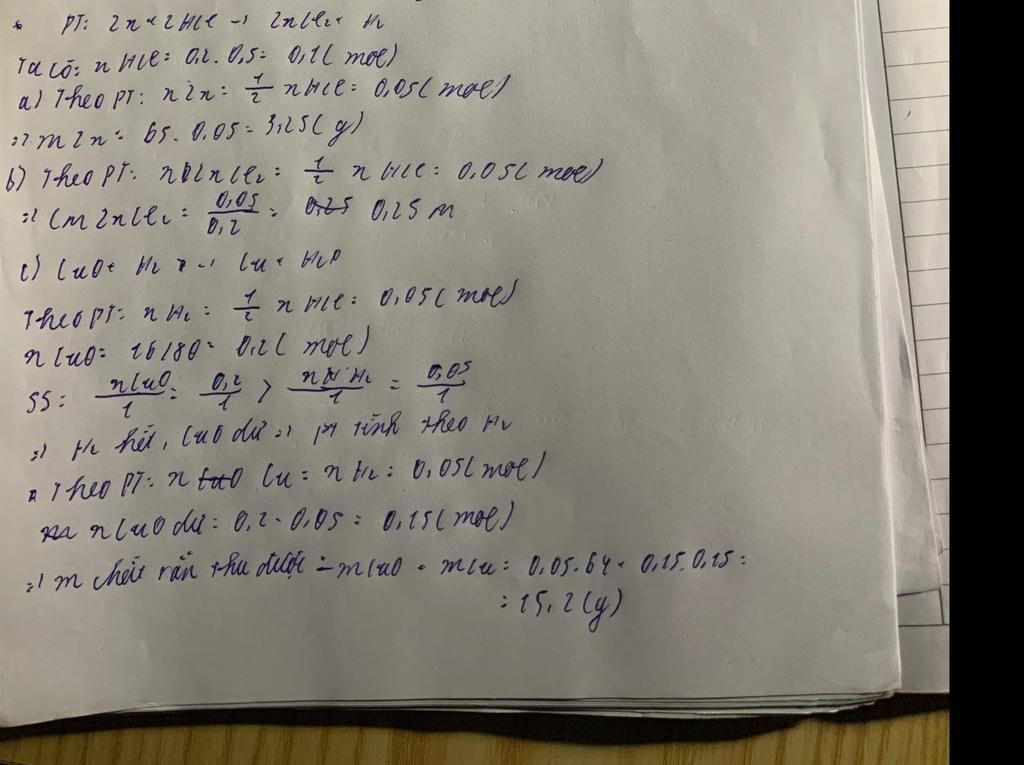 * PT: Zn + 2HCl → ZnCl₂ + H₂
Ta có: nHCl = 0,2 . 0,5 = 0,1 (mol)
a) Theo PT: nZn = 1/2 nHCl = 0,05 (mol)
=> mZn = 65 . 0,05 = 3,25 (g)
b) Theo PT: nZnCl₂ = 1/2 nHCl = 0,05 (mol)
=> CM ZnCl₂ = 0,05/0,2 = 0,25 0,25 M
c) CuO + H₂ → Cu + H₂O
Theo PT: nH₂ = 1/2 nHCl = 0,05 (mol)
nCuO = 16/80 = 0,2 (mol)
SS: nCuO/1 = 0,2/1 > nH₂/1 = 0,05/1
=> H₂ hết, CuO dư => pt tính theo H₂
Theo PT: n CuO Cu = nH₂ = 0,05 (mol)
nCuO dư = 0,2 - 0,05 = 0,15 (mol)
=> m chất rắn thu được = mCuO + mCu = 0,05.64 + 0,15.0,15 =
= 15,2 (g)